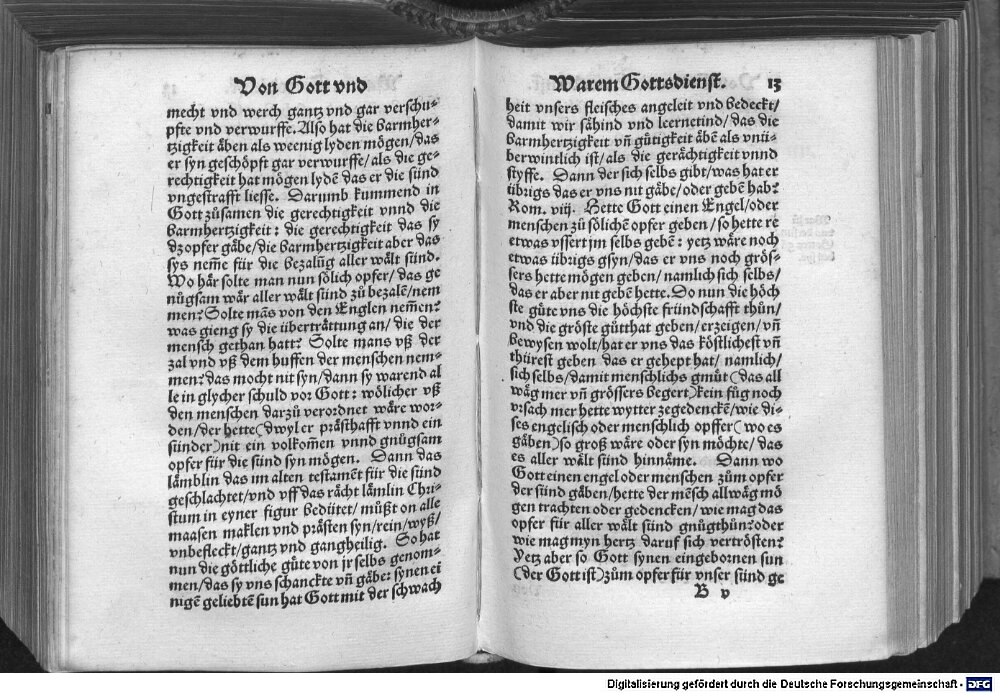 Von Gott vnd
mecht vnd werch gantz vnd gar verschu-
pfte vnd verwurffe. Also hat die barmher-
tzigkeit äben als weenig lyden mögen/das
er syn geschöpft gar verwurffe/als die ge-
rechtigkeit hat mögen lydē das er die sünd
vngestrafft liesse. Darumb kummend in
Gott zůsamen die gerechtigkeit vnnd die
barmhertzigkeit: die gerechtigkeit das sy
dz opfer gäbe/die barmhertzigkeit aber das
sys nem̄e für die bezalūg aller wält sünd.
Wo här solte man nun sölich opfer/das ge
nůgsam wär aller wält sünd zů bezalē/nem
men? Solte mās von den Englen nem̄en?
was gieng sy die überträttung an/die der
mensch gethan hatt? Solte mans vß der
zal vnd vß dem huffen der menschen nem-
men? das mocht nit syn/dann sy warend al
le in glycher schuld vor Gott: wölicher vß
den menschen darzů verordnet wäre wor-
den/der hette(dwyl er prästhafft vnnd ein
sünder)nit ein volkom̄en vnnd gnůgsam
opfer für die sünd syn mögen. Dann das
lämblin das im alten testamēt für die sünd
geschlachtet/vnd vff das rächt lämlin Chri-
stum in eyner figur bedütet/můßt on alle
maasen maklen vnd prästen syn/rein/wyß/
vnbefleckt/gantz vnd gangheilig. So hat
nun die göttliche güte von jr selbs genom-
men/das sy vns schanckte vn̄ gäbe: synen ei
nigē geliebtē sun hat Gott mit der schwach
Warem Gottsdienst. 13
heit vnsers fleisches angeleit vnd bedeckt/
damit wir sähind vnd leernetind/das die
barmhertzigkeit vn̄ gütigkeit äbē als vnü-
berwintlich ist/als die gerächtigkeit vnnd
styffe. Dann der sich selbs gibt/was hat er
übrigs das er vns nit gäbe/oder gebē hab?
Rom. viij. Hette Gott einen Engel/oder
menschen zů sölichē opfer geben/so hette re
etwas vssert jm selbs gebē: yetz wäre noch
etwas übrigs gsyn/das er vns noch grös-
sers hette mögen geben/namlich sich selbs/
das er aber nit gebē hette. Do nun die höch
ste güte vns die höchste fründschafft thůn/
vnd die gröste gůtthat geben/erzeigen/vn̄
bewysen wolt/hat er vns das köstlichest vn̄
thürest geben das er gehept hat/namlich/
sich selbs/damit menschlichs gmüt(das all
wäg mer vn̄ grössers begert)kein fůg noch
vrsach mer hette wytter zegedenckē/wie di-
ses engelisch oder menschlich opffer(wo es
gäben)so groß wäre oder syn möchte/das
es aller wält sünd hinnäme. Dann wo
Gott einen engel oder menschen zům opfer
der sünd gäben/hette der mēsch allwäg mö
gen trachten oder gedencken/wie mag das
opfer für aller wält sünd gnůgthůn? oder
wie mag myn hertz daruf sich vertrösten?
Yetz aber so Gott synen eingebornen sun
(der Gott ist)zům opfer für vnser sünd ge
B v
Digitalisierung gefördert durch die Deutsche Forschungsgemeinschaft - DFG